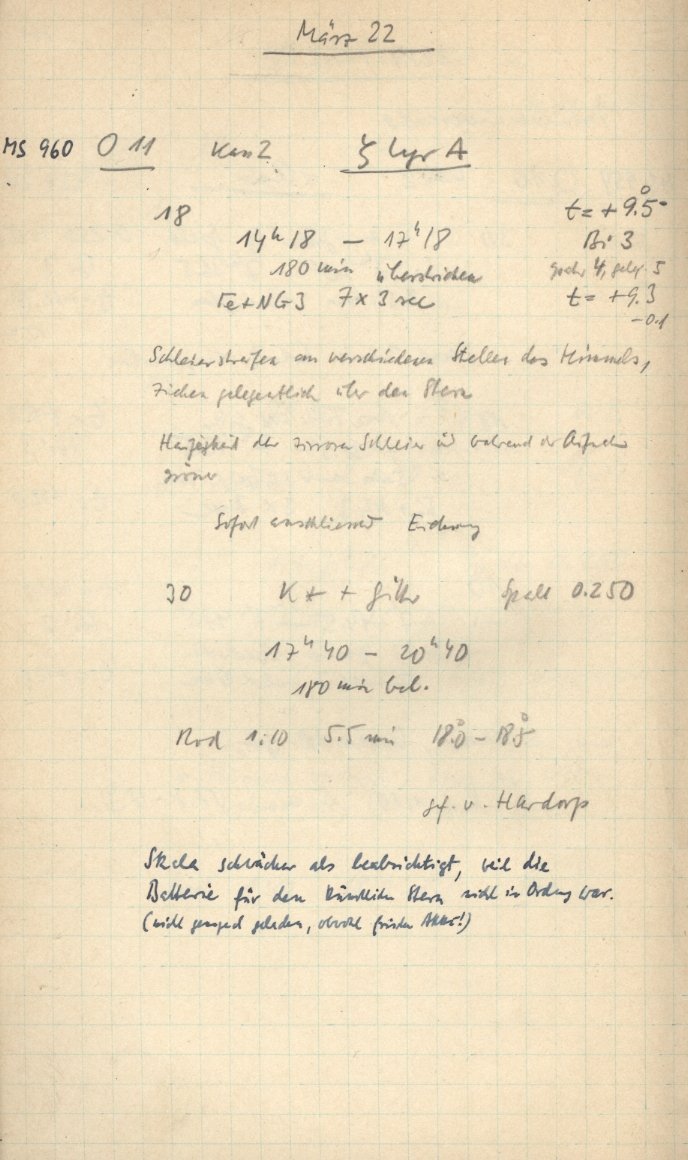 März 22
MS 960 O 11 Kas 2 ζ Lyr A
18 t = + 9.°5
14ʰ 18 — 17ʰ 18 Bi 3
180 min überstrichen 4, 5
Fe+NG3 7 x 3 sec t = + 9.3
-0.1
Schleierstreifen an verschiedenen Stellen des Himmels,
ziehen gelegentlich über den Stern
Häufigkeit der Schleier während der Aufnahme
grösser
Sofort anschliessend Eichung
30 K * + Gitter Spalt 0.250
17ʰ 40 — 20ʰ 40
180 min bel.
Rod 1:10 5.5 min 18.°0 — 18.°5
gef. v. Hardorp
Skala schwächer als beabsichtigt, weil die
Batterie für den künstlichen Stern nicht in Ordnung war.
(nicht genügend geladen, obwohl frischer Akku!)